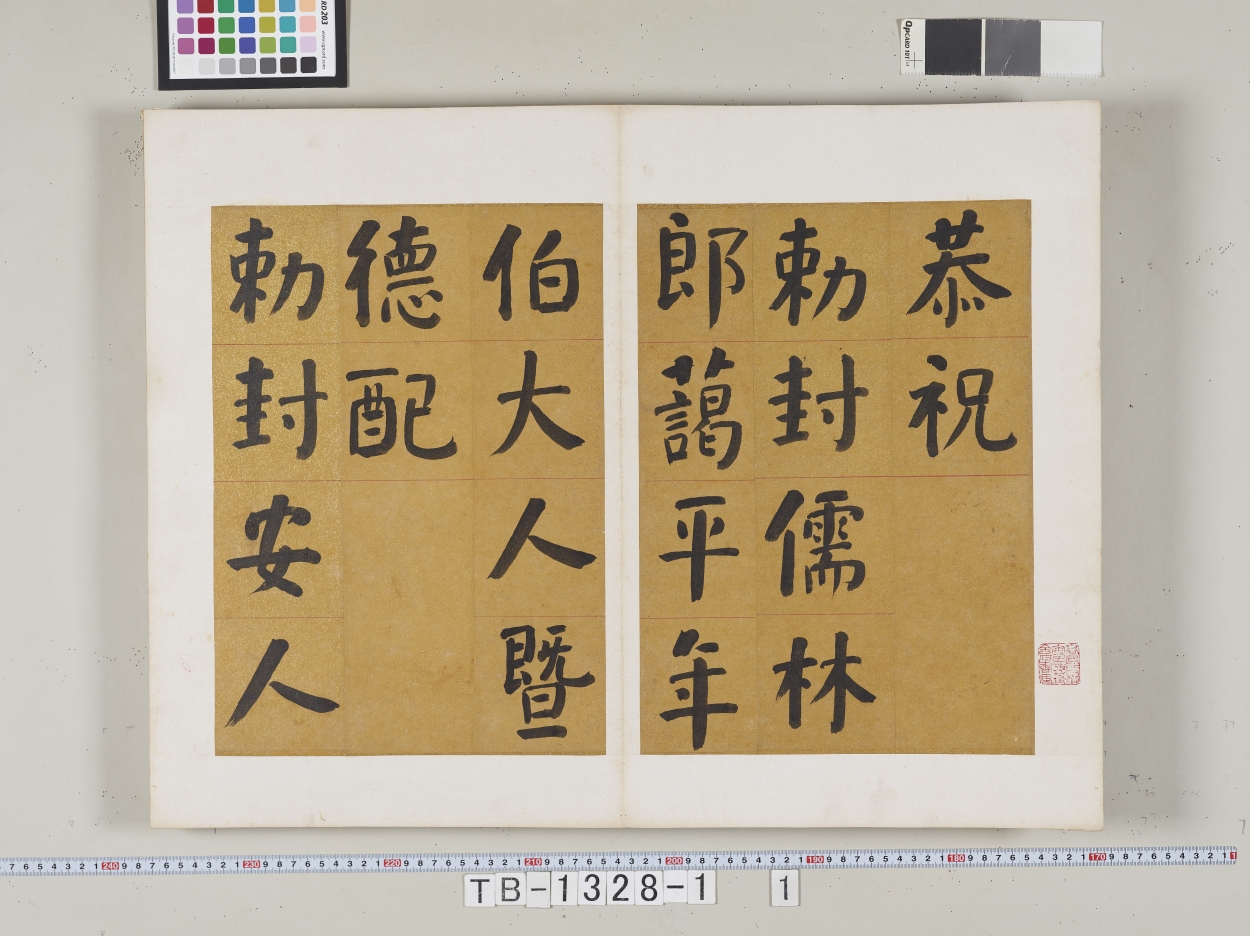 恭祝
勅封儒林
郎藹平年
伯大人暨
德配
勅封安人
TB-1328-1 1